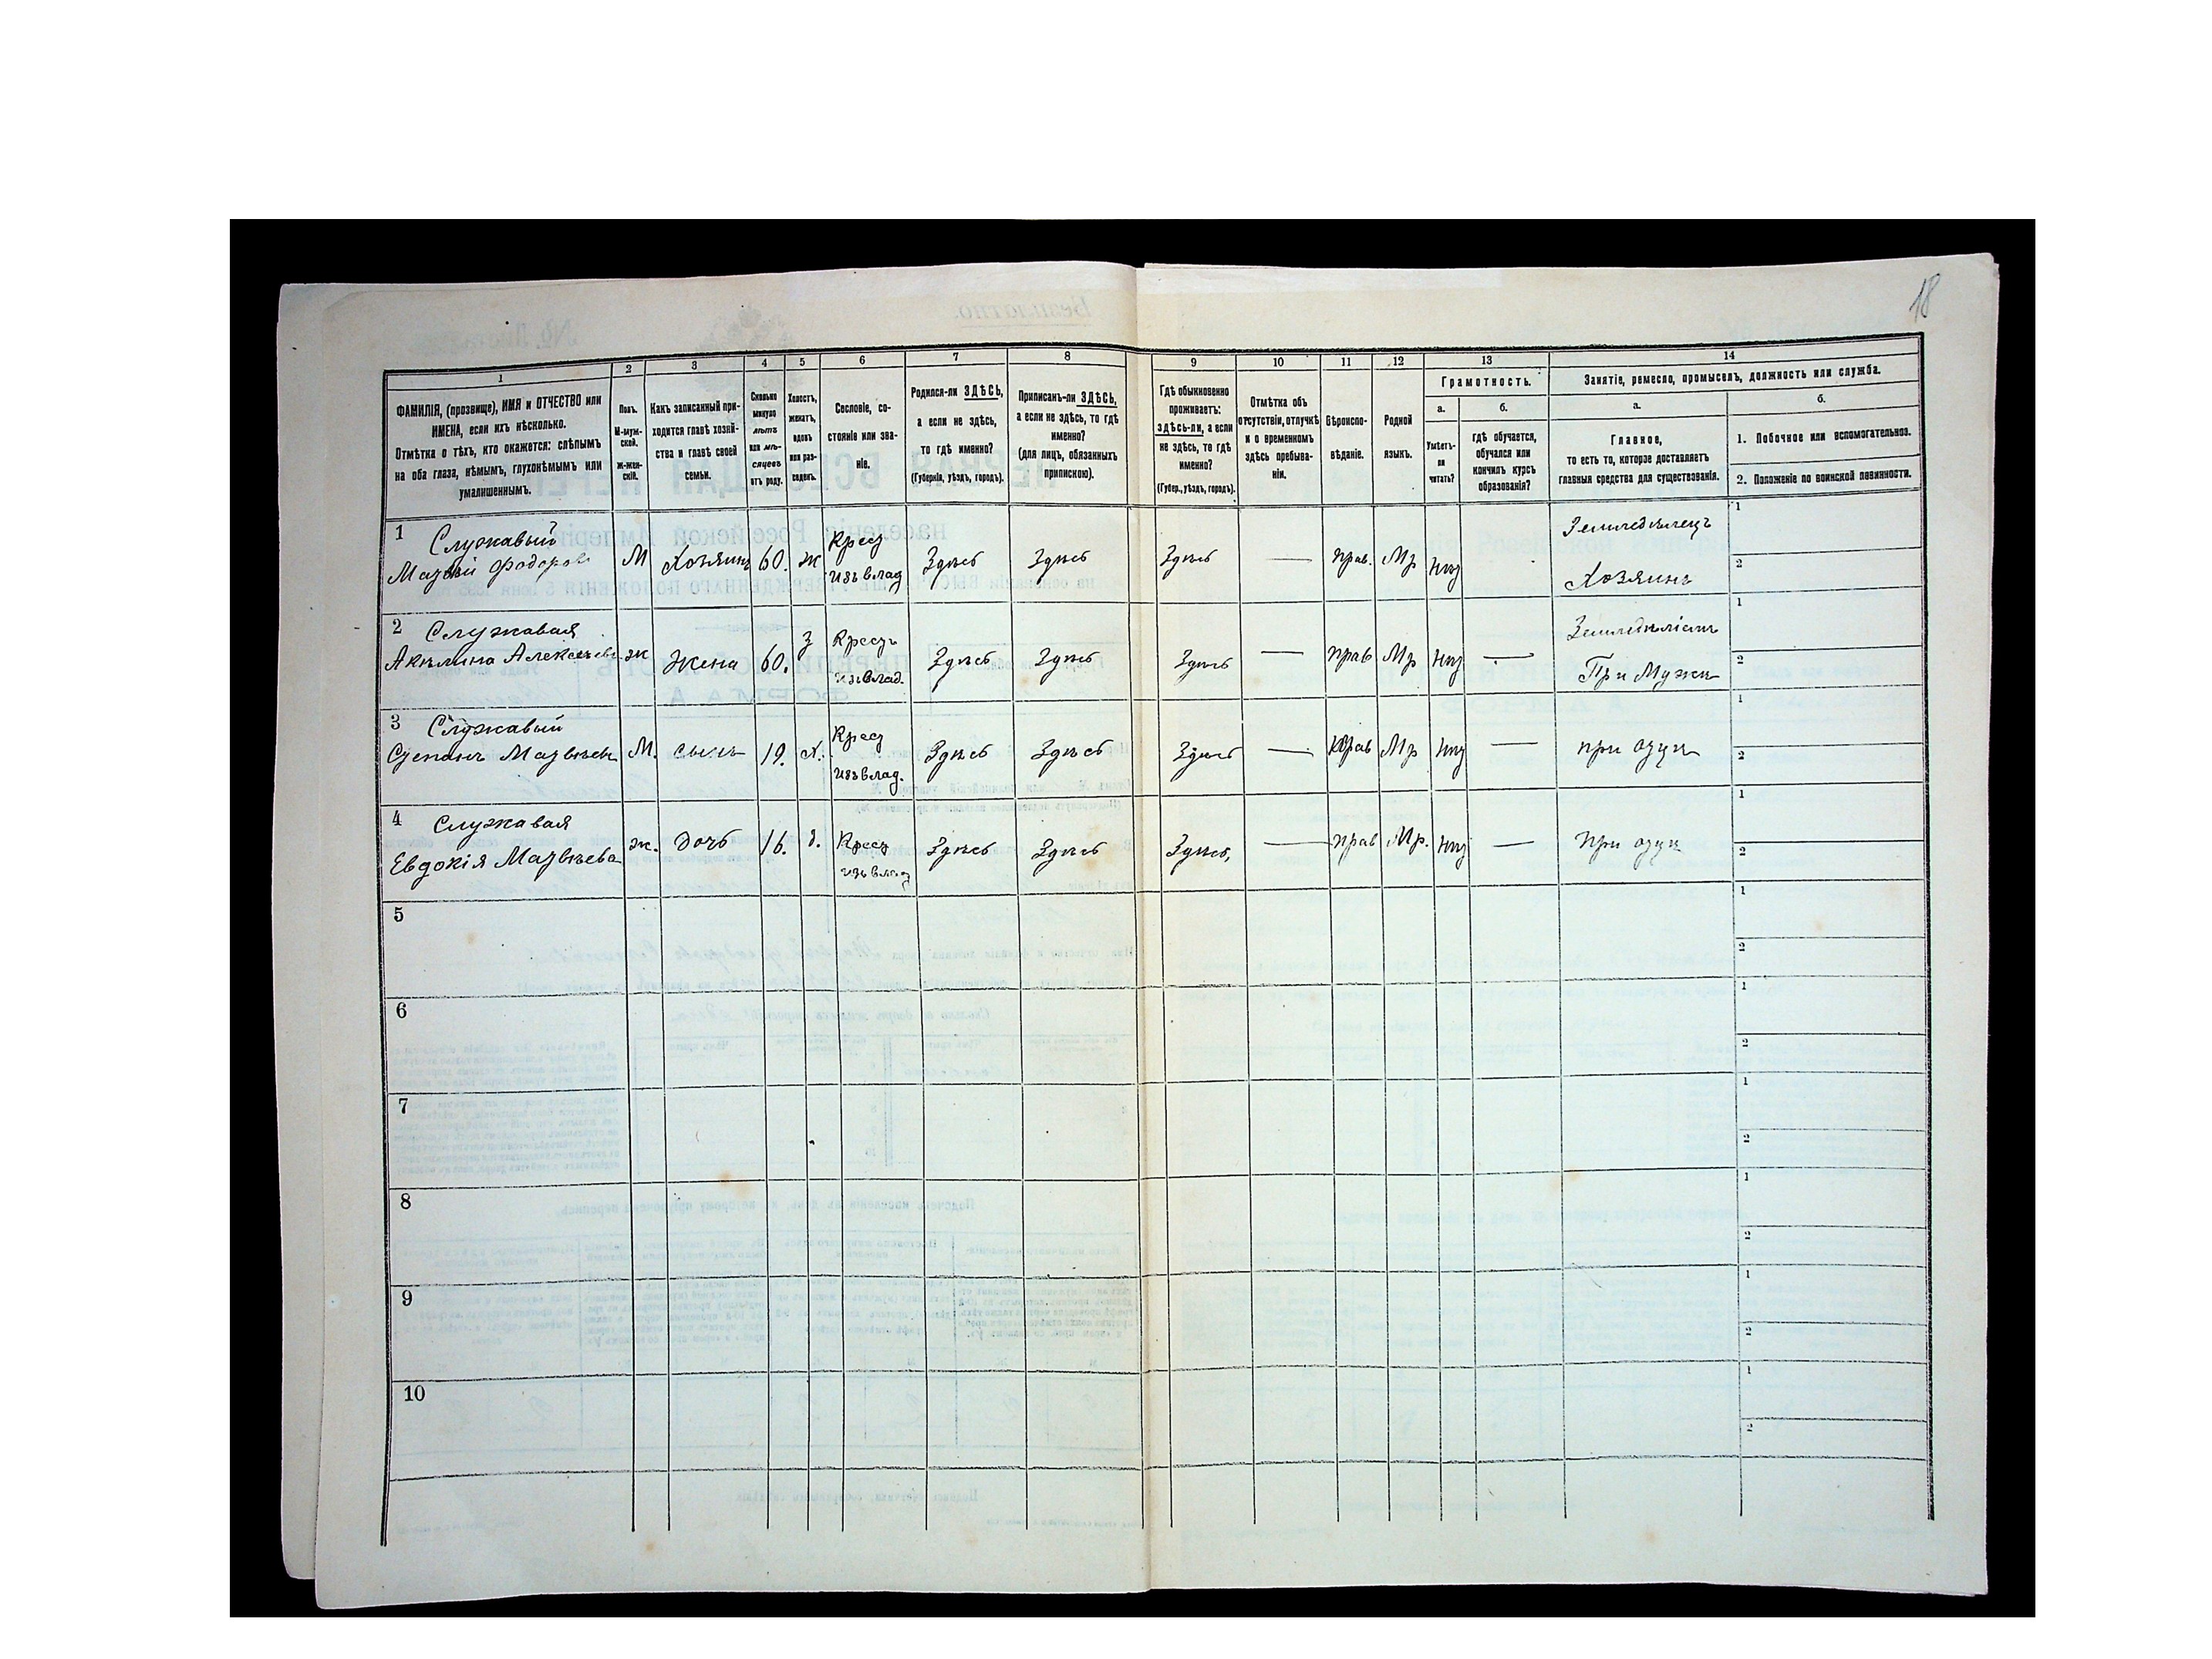 18
1 2 3 4 5 6 7 8 9 10 11 12 13 14
ФАМИЛІЯ, (прозвище), ИМЯ и ОТЧЕСТВО или
ИМЕНА, если ихъ нѣсколько.
Отмѣтка о тѣхъ, кто окажется: слѣпымъ
на оба глаза, нѣмымъ, глухонѣмымъ или
умалишеннымъ.
Полъ.
М-муж-
ской.
Ж-жен-
скій.
Какъ записанный при-
ходится главѣ хозяй-
ства и главѣ своей
семьи.
Сколько
минуло
лѣтъ
или мѣ-
сяцевъ
отъ роду.
Холостъ,
женатъ,
вдовъ
или раз-
веденъ.
Сословіе, со-
стояніе или зва-
ніе.
Родился-ли ЗДѢСЬ,
а если не здѣсь,
то гдѣ именно?
(Губернія, уѣздъ, городъ).
Приписанъ-ли ЗДѢСЬ,
а если не здѣсь, то гдѣ
именно?
(для лицъ, обязанныхъ
припискою).
Гдѣ обыкновенно
проживаетъ:
здѣсь-ли, а если
не здѣсь, то гдѣ
именно?
(Губер., уѣздъ, городъ).
Отмѣтка объ
отсутствіи, отлучкѣ
и о временномъ
здѣсь пребыва-
ніи.
Вѣроиспо-
вѣданіе.
Родной
языкъ.
Грамотность.
а.
Умѣетъ-
ли
читать?
б.
гдѣ обучается,
обучался или
кончилъ курсъ
образованія?
Занятіе, ремесло, промыселъ, должность или служба.
а.
Главное,
то есть то, которое доставляетъ
главныя средства для существованія.
б.
1. Побочное или вспомогательное.
2. Положеніе по воинской повинности.
1 Служавый
Матвій Федоровъ М Хозяинъ 60. ж Крест
изъ влад Здѣсь Здѣсь Здѣсь — прав. Мр нет Земледѣлецъ
Хозяинъ 1 2
2 Служавая
Акилина Алексѣева ж Жена 60. З Крестъ
изъ влад. Здѣсь Здѣсь Здѣсь — прав Мр нет —
При Мужѣ 1 2
3 Служавый
Степанъ Матвѣевъ М. сынъ 19. Х. Крест
изъ влад. Здѣсь Здѣсь Здѣсь — прав Мр нет — при отцѣ 1 2
4 Служавая
Евдокія Матвѣева ж. дочь 16. д. Крест
изъ влад Здѣсь Здѣсь Здѣсь, — прав Мр. нет — при отцѣ 1 2
5 1 2
6 1 2
7 1 2
8 1 2
9 1 2
10 1 2